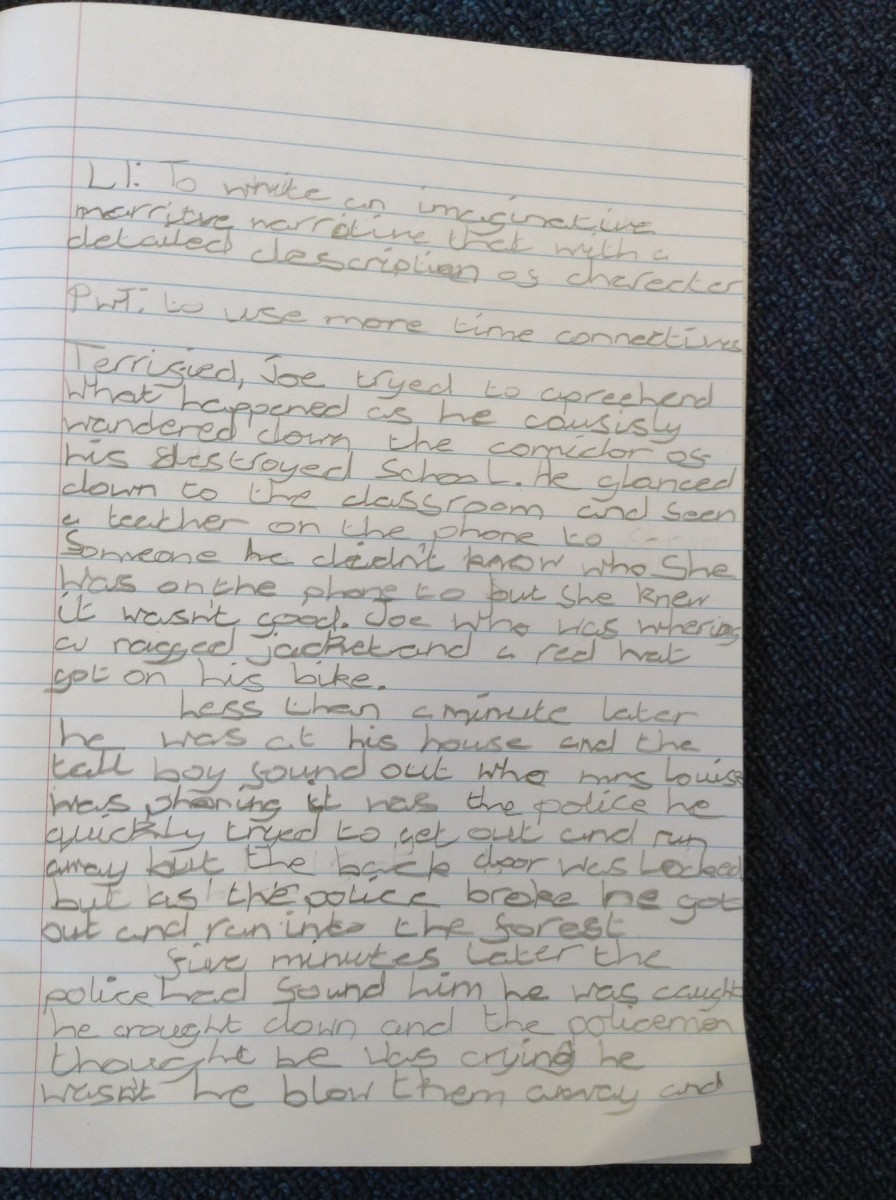 LI: To write an imaginative
marritve narritive that with a
detailed description of charecter
PWT: to use more time connectives
Terrified, Joe tryed to apreehend
what happened as he causisly
wandered down the corridor of
his destroyed school. He glanced
down to the classroom and seen
a teather on the phone to
Someone he didn't know who She
was on the phone to but She knew
it wasn't good. Joe who was whering
a ragged jacket and a red hat
got on his bike.
Less than a minute later
he was at his house and the
tall boy found out who mrs louise
was phoning it was the police he
quickly tryed to get out and run
away but the back door was Locked
but as the police broke he got
out and ran into the forest
five minutes Later the
police had found him he was caught
he crought down and the policemen
thought he was crying he
wasn't he blow them away and